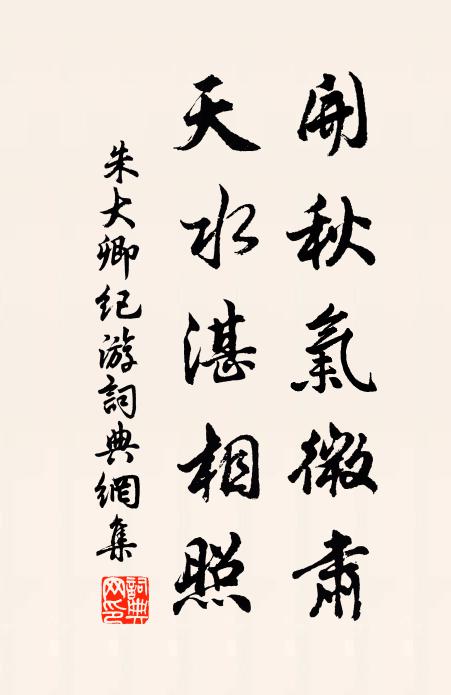 開秋氣微肅
天水湛相照
朱大卿紀游詞典網集
詞典网印